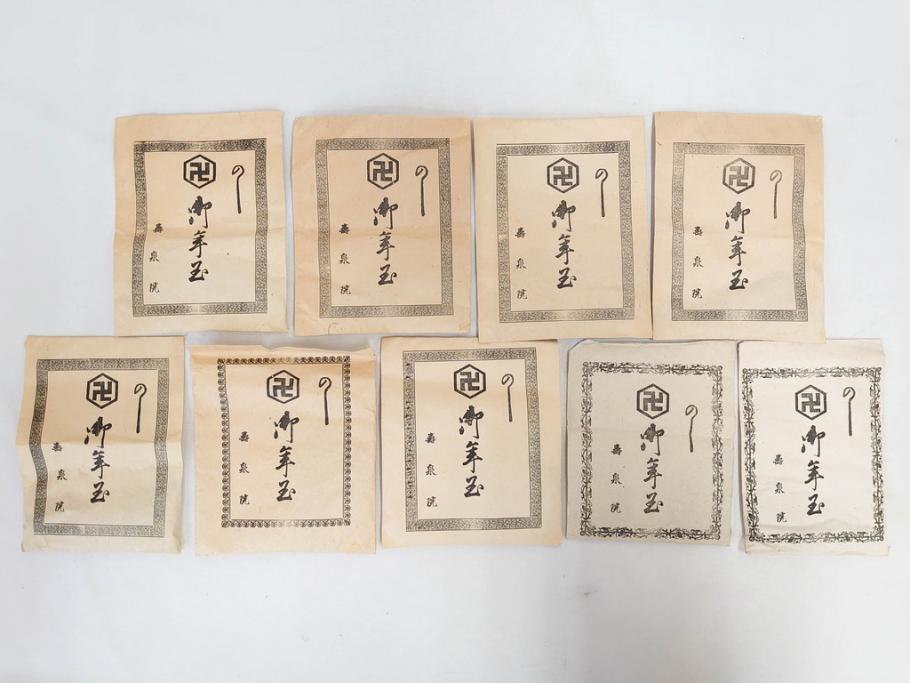 の
卍
御年玉
壽泉院
の
卍
御年玉
壽泉院
の
卍
御年玉
壽泉院
の
卍
御年玉
壽泉院
の
卍
御年玉
壽泉院
の
卍
御年玉
壽泉院
の
卍
御年玉
壽泉院
の
卍
御年玉
壽泉院
の
卍
御年玉
壽泉院